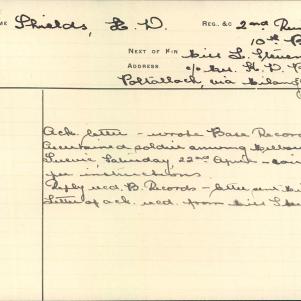 ME Shields, H. D. REG. &C 2nd Rein
10th B
NEXT OF KIN Miss L. Steven
ADDRESS c/o Mrs. H. D. B
Poltalloch, via
Ack. letter - wrote Base Records
Ascertained soldier arriving Melbour
Saturday, 22nd April -
per instructions.
Reply recd. B. Records - letter sent Mi
Letter of ack. recd. from Miss Ste